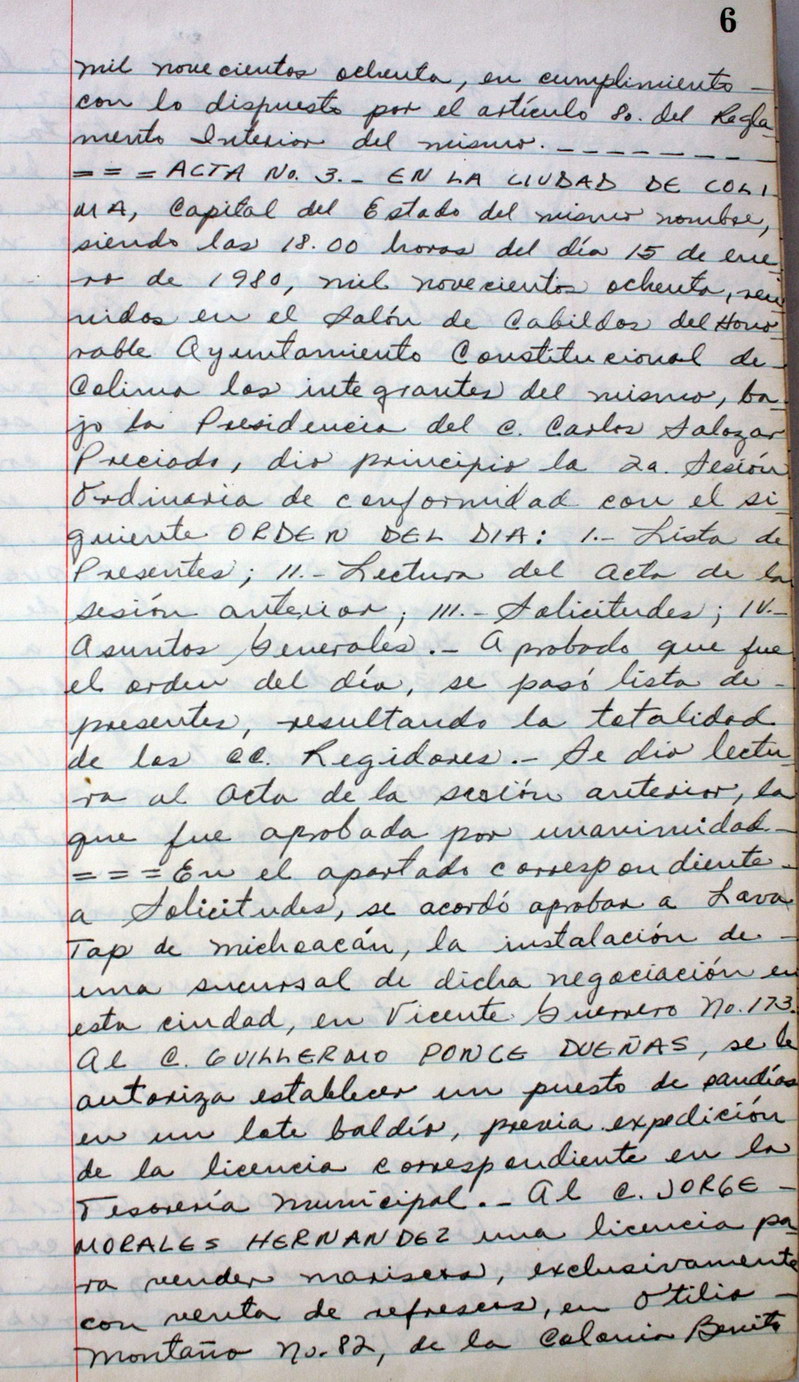 6
mil novecientos ochenta, en cumplimiento -
con lo dispuesto por el artículo 8o. del Regla-
mento Interior del mismo. - - - - - - - -
= = = ACTA No. 3.- EN LA CIUDAD DE COLI-
MA, Capital del Estado del mismo nombre,
siendo las 18.00 horas del día 15 de ene-
ro de 1980, mil novecientos ochenta, reu-
nidos en el Salón de Cabildos del Hono-
rable Ayuntamiento Constitucional de -
Colima los integrantes del mismo, ba-
jo la Presidencia del C. Carlos Salazar
Preciado, dio principio la 2a. Sesión
Ordinaria de conformidad con el si-
guiente ORDEN DEL DIA: I.- Lista de
Presentes; II.- Lectura del Acta de la
sesión anterior; III.- Solicitudes; IV.-
Asuntos Generales.- Aprobado que fue
el orden del día, se pasó lista de -
presentes, resultando la totalidad
de los CC. Regidores.- Se dio lectu-
ra al Acta de la sesión anterior, la
que fue aprobada por unanimidad -
= = = En el apartado correspondiente -
a Solicitudes, se acordó aprobar a Lava
Tap de Michoacán, la instalación de -
una sucursal de dicha negociación en
esta ciudad, en Vicente Guerrero No. 173.
Al C. GUILLERMO PONCE DUEÑAS, se le
autoriza establecer un puesto de sandías
en un lote baldío, previa expedición
de la licencia correspondiente en la
Tesorería Municipal.- Al C. JORGE -
MORALES HERNANDEZ una licencia pa-
ra vender mariscos, exclusivamente
con venta de refrescos, en Otilio -
Montaño No. 82, de la Colonia Benito